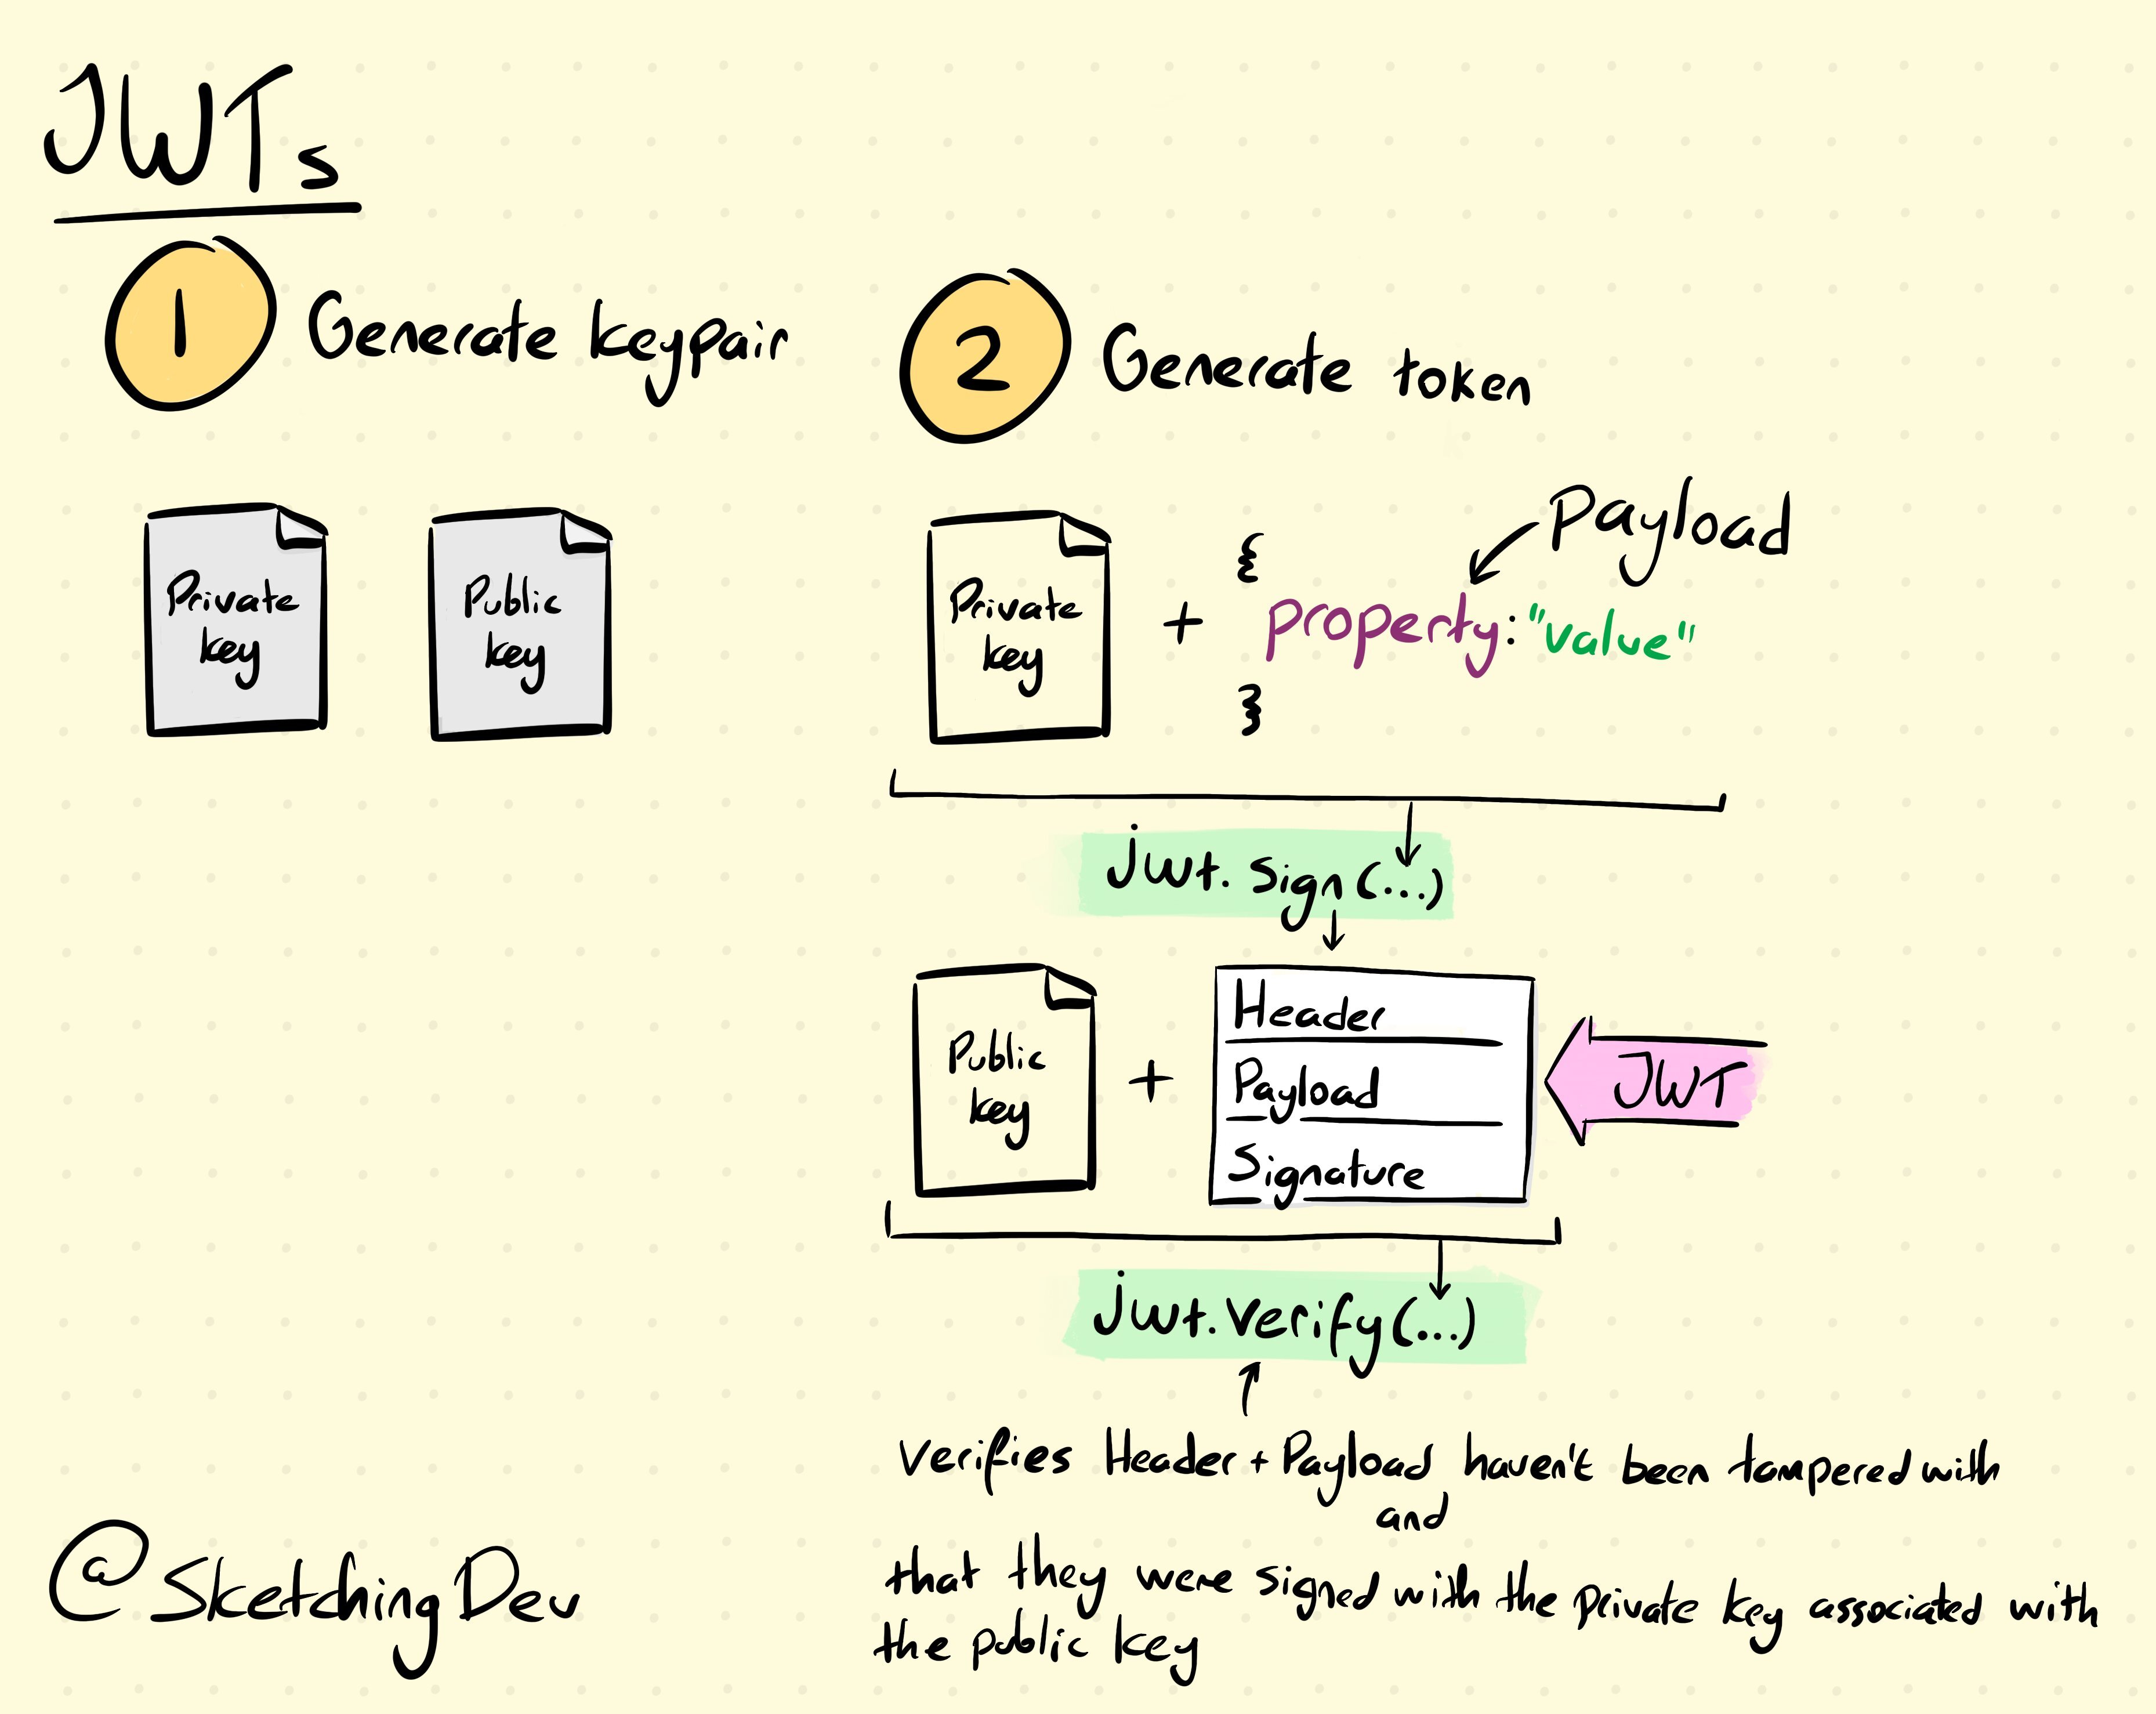 JWTs
1 Generate keypair
Private
key
Public
key
2 Generate token
Private
key
+
{
property: "value"
}
Payload
jwt. sign(...)
Public
key
+
Header
Payload
Signature
JWT
jwt.verify(...)
verifies Header + Payload haven't been tampered with
and
that they were signed with the private key associated with
the public key
@SketchingDev